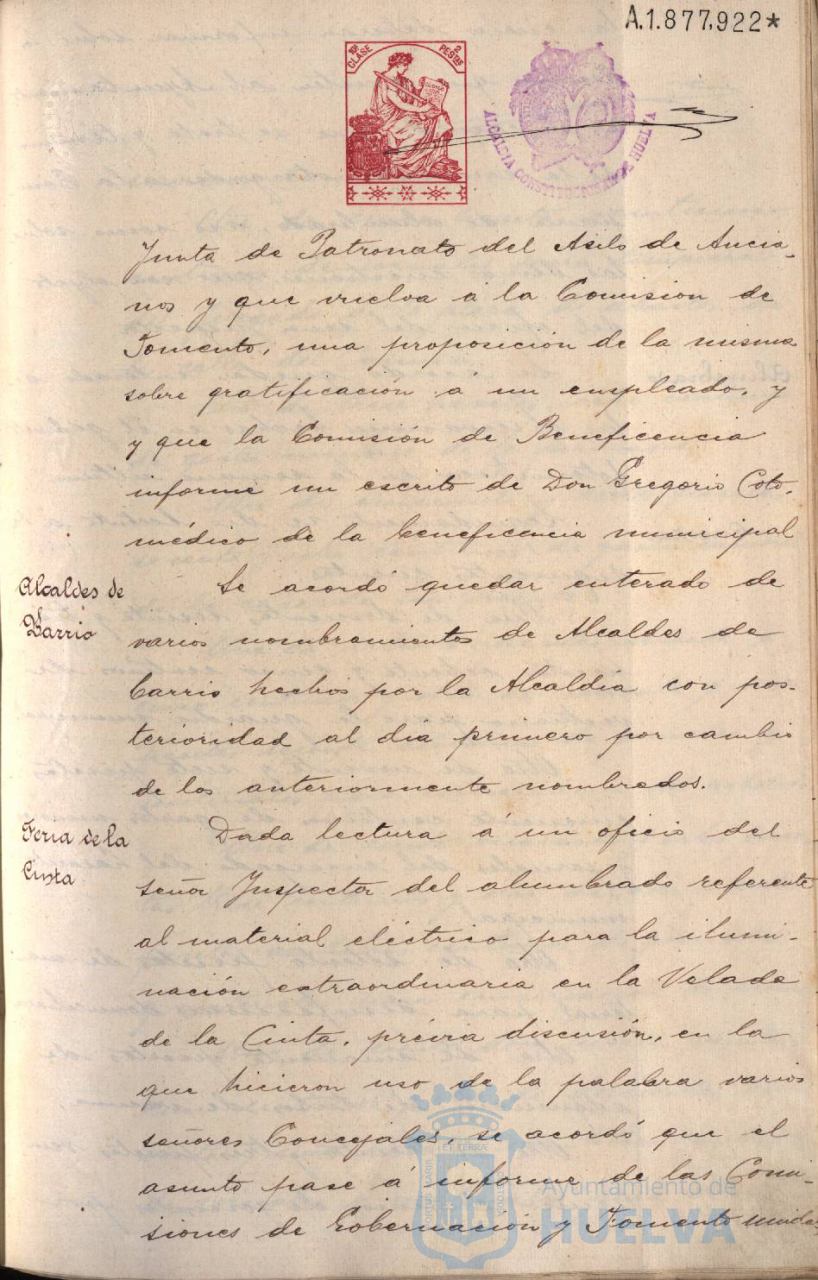 A.1.877,922*
10ª CLASE
2 PESETAS
ALCALDIA CONSTITUCIONAL DE HUELVA
Junta de Patronato del Asilo de Ancia-
nos y que vuelva á la Comision de
Fomento, una proposición de la misma
sobre gratificación a un empleado, y
y que la Comisión de Beneficencia
informe un escrito de Don Gregorio Coto,
médico de la beneficencia municipal
Alcaldes de
Barrio
Se acordó quedar enterado de
varios nombramientos de Alcaldes de
barrio hechos por la Alcaldía con pos-
terioridad al día primero por cambio
de los anteriormente nombrados.
Feria de la
Cinta
Dada lectura á un oficio del
señor Inspector del alumbrado referente
al material eléctrico para la ilumi-
nación extraordinaria en la Velada
de la Cinta, prévia discusión, en la
que hicieron uso de la palabra varios
señores Concejales, se acordó que el
asunto pase á informe de las Comi-
siones de Gobernación y Fomento unidas
Ayuntamiento de
HUELVA